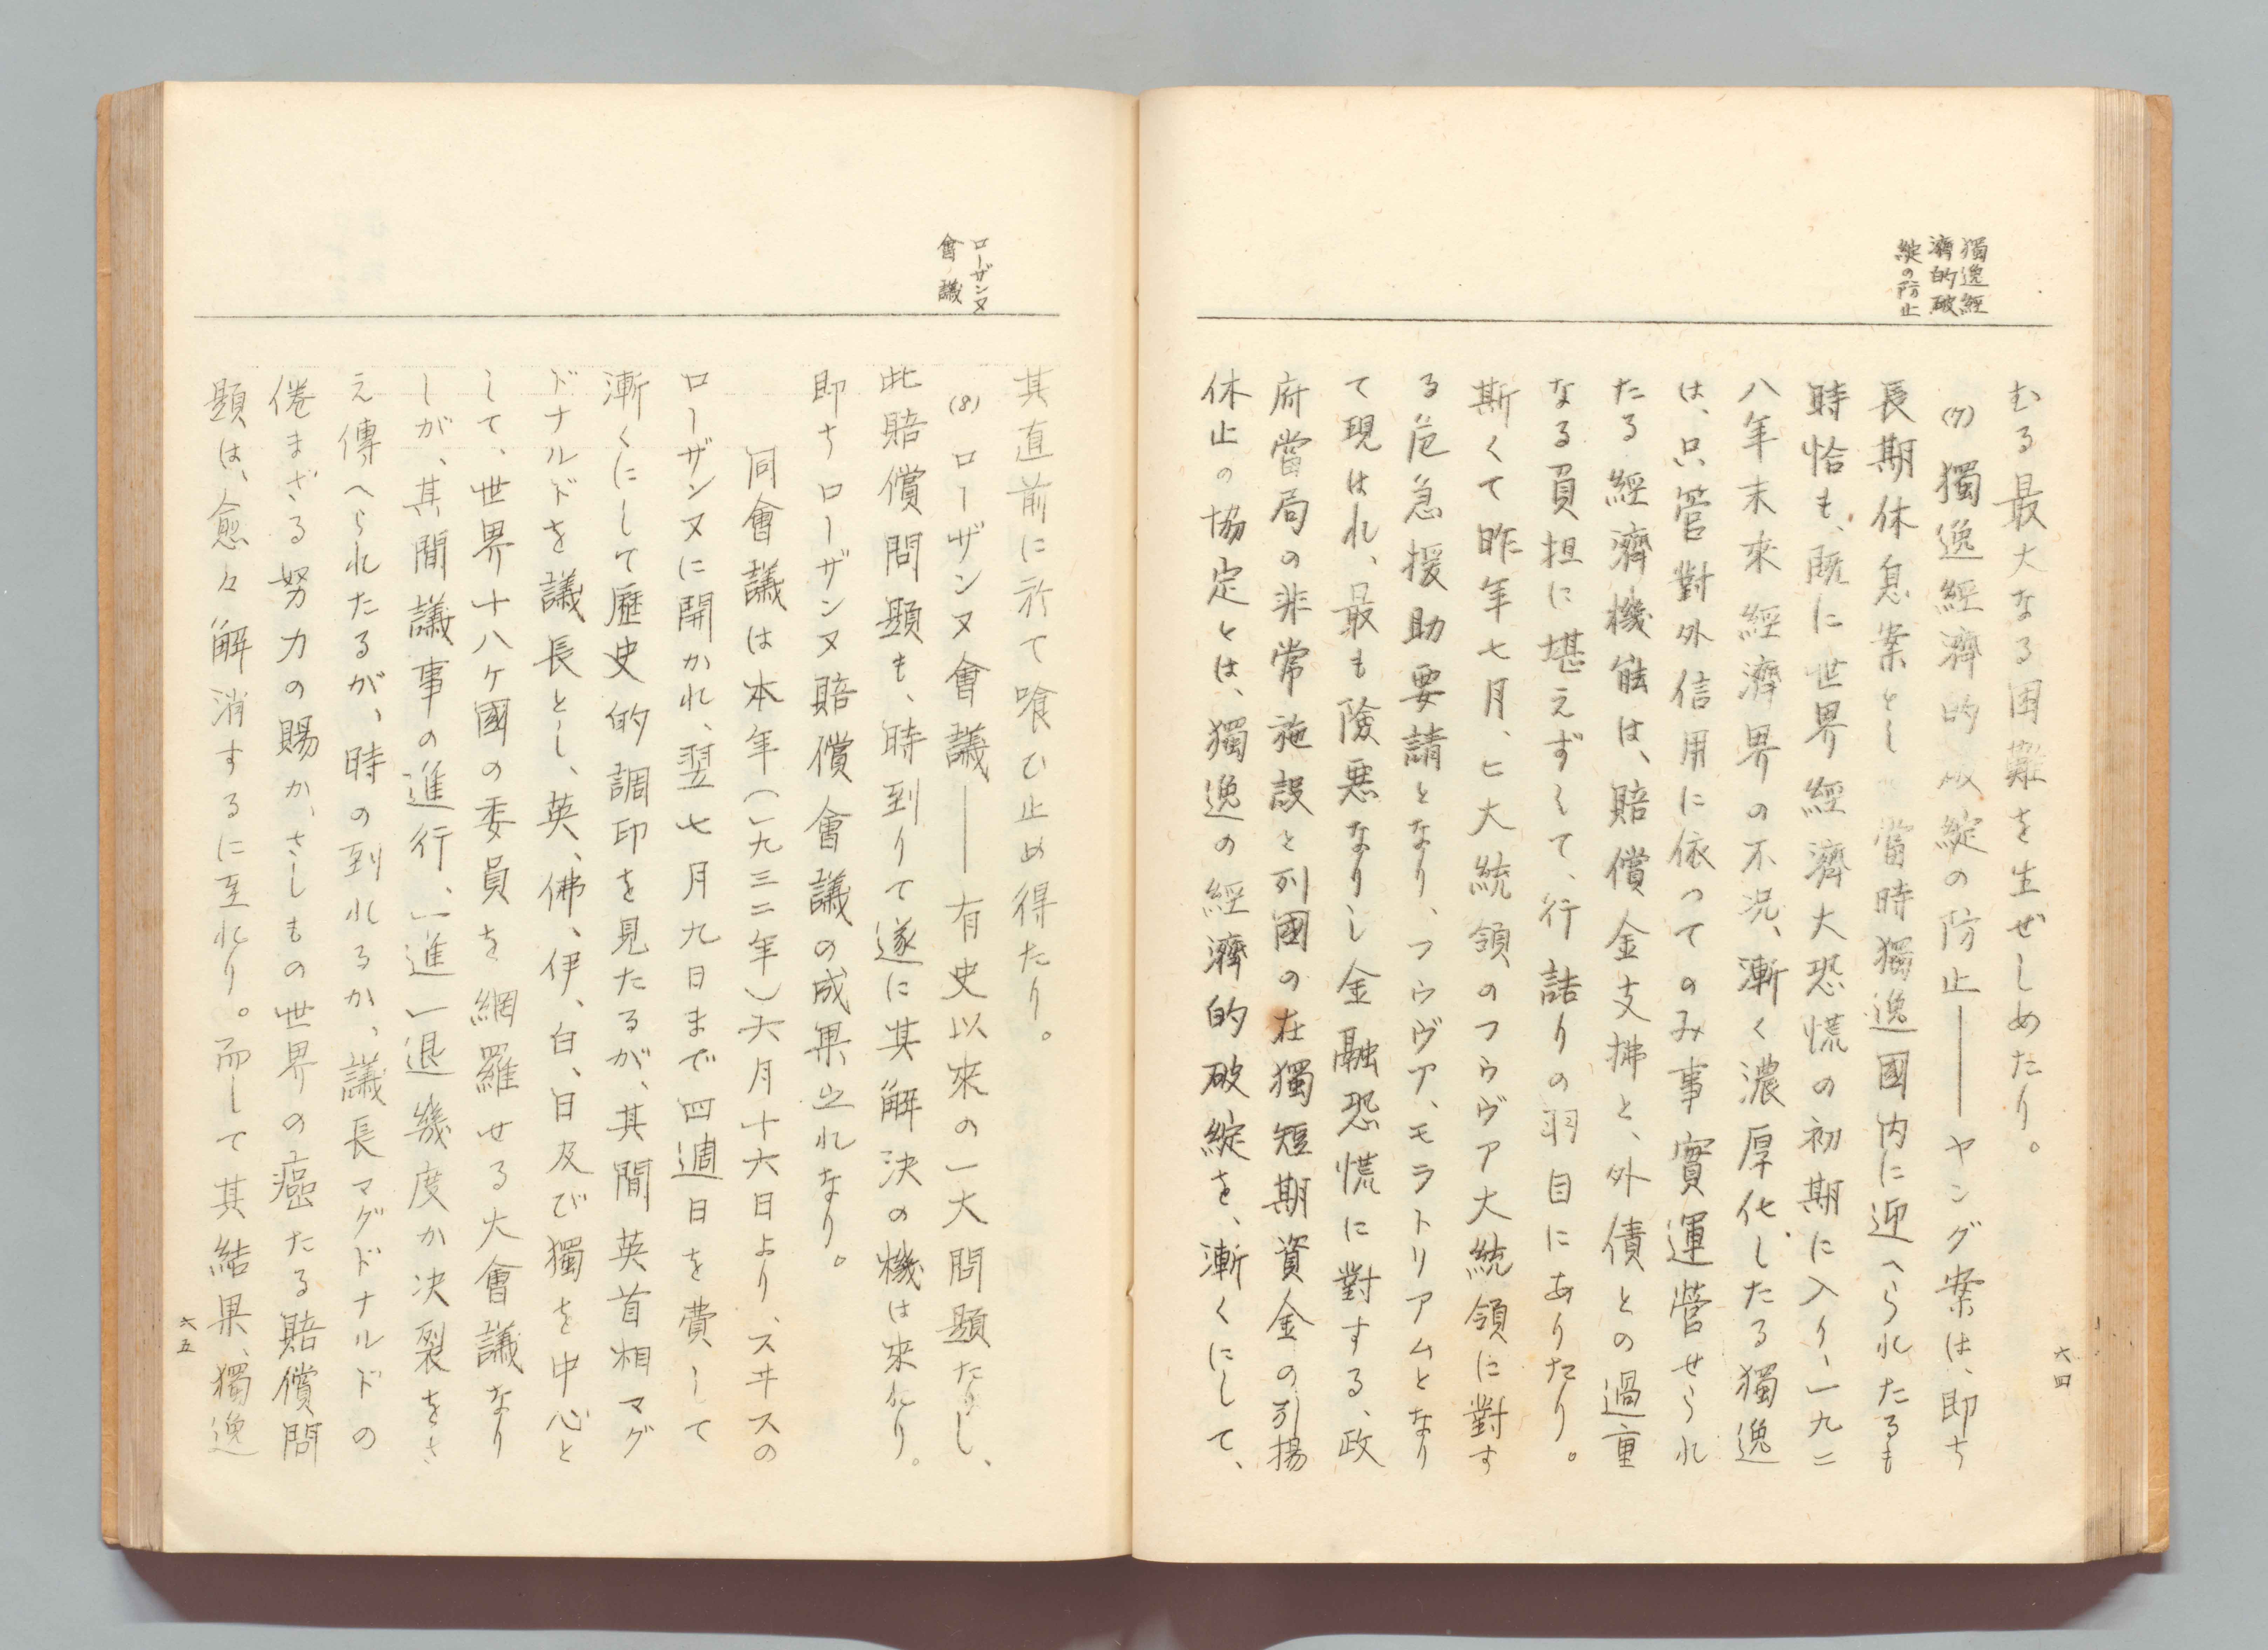 獨逸經
濟的破
綻の防止
むる最大なる困難を生ぜしめたり。
(7) 獨逸經濟的破綻の防止――ヤング案は、即ち
長期休息案とし 當時獨逸國内に迎へられたるも
時恰も、既に世界經濟大恐慌の初期に入り、一九二
八年末來經濟界の不況、漸く濃厚化したる獨逸
は、只管對外信用に依つてのみ事實運營せられ
たる經濟機能は、賠償金支拂と、外債との過重
なる負担に堪えずして、行詰りの羽目にありたり。
斯くて昨年七月、ヒ大統領のフゥヴア大統領に對す
る危急援助要請となり、フゥヴア、モラトリアムとなり
て現はれ、最も險惡なりし金融恐慌に對する、政
府當局の非常施設と列國の在獨短期資金の引揚
休止の協定とは、獨逸の經濟的破綻を、漸くにして、
六四
ローザンヌ
會議
其直前に於て喰ひ止め得たり。
(8) ローザンヌ會議――有史以來の一大問題たりし、
此賠償問題も、時到りて遂に其解決の機は來れり。
即ちローザンヌ賠償會議の成果之れなり。
同會議は本年(一九三二年)六月十六日より、スヰスの
ローザンヌに開かれ、翌七月九日まで四週日を費して
漸くにして歴史的調印を見たるが、其間英首相マグ
ドナルドを議長とし、英、佛、伊、白、日及び獨を中心と
して、世界十八ヶ國の委員を網羅せる大會議なり
しが、其間議事の進行、一進一退幾度か决裂をさ
え傳へられたるが、時の到れるか、議長マグドナルドの
倦まざる努力の賜か、さしもの世界の癌たる賠償問
題は、愈々解消するに至れり。而して其結果、獨逸
六五